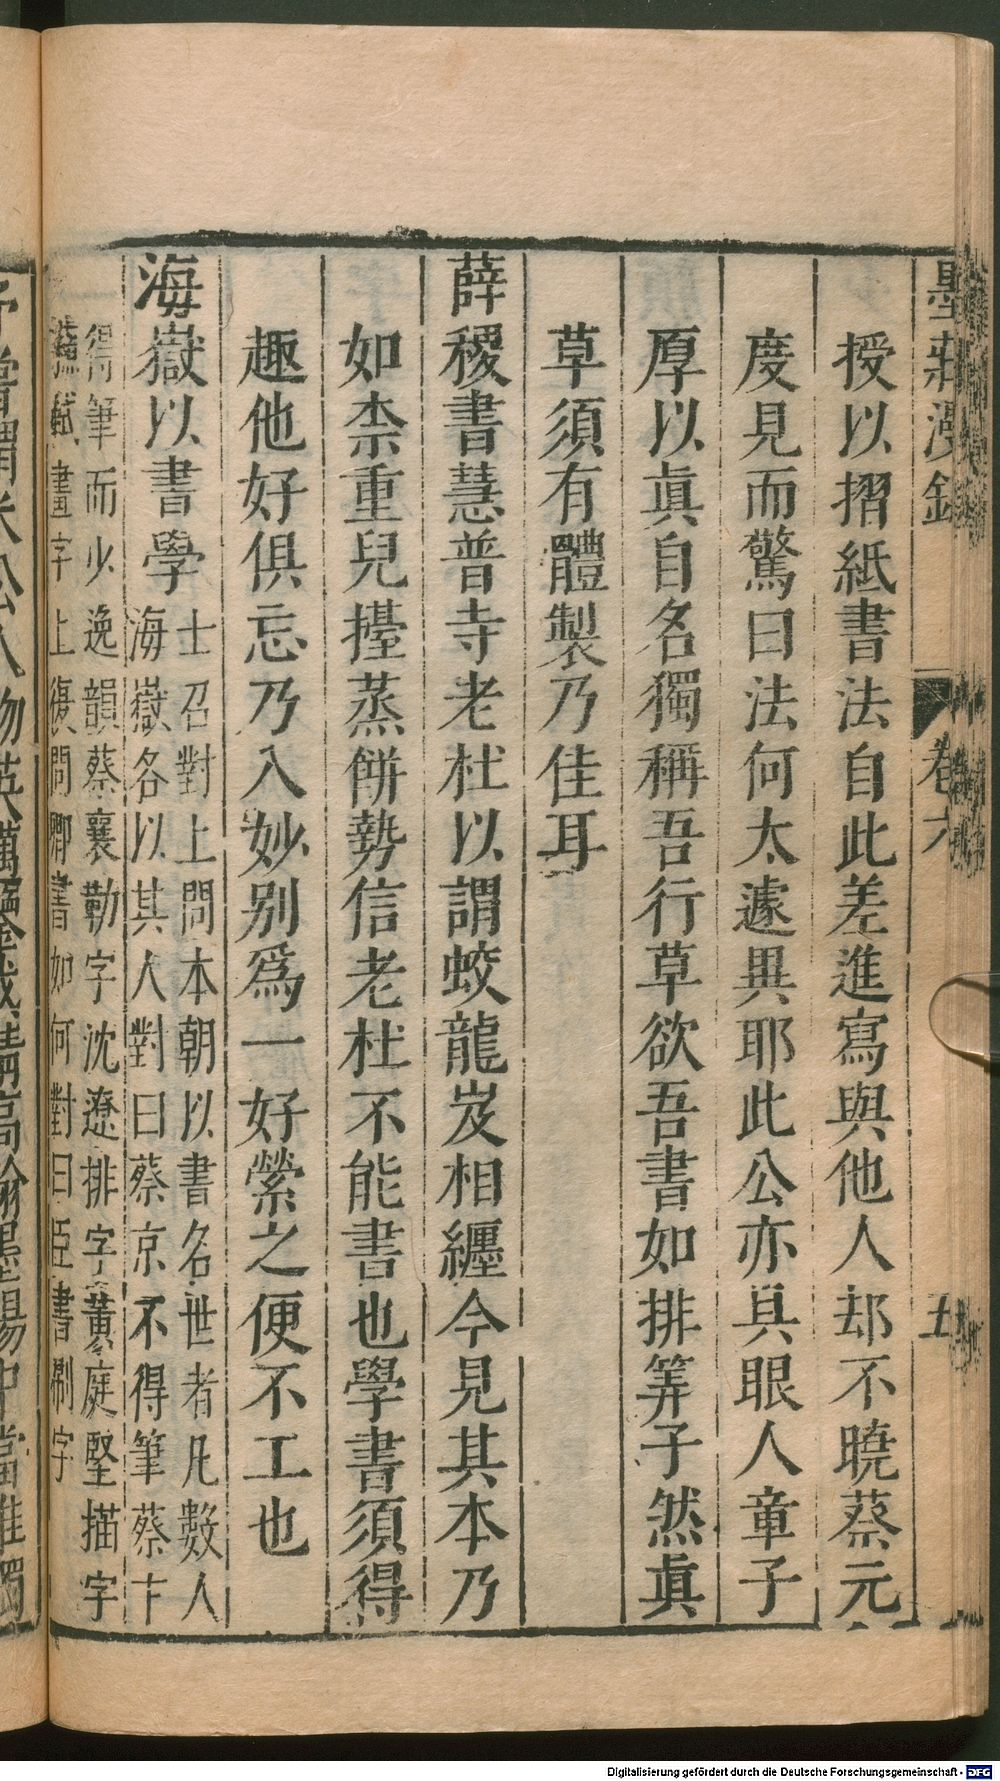 墨莊漫錄 卷六 五
授以摺紙書法自此差進寫與他人却不曉蔡元
度見而驚曰法何太遽異耶此公亦具眼人章子
厚以眞自名獨稱吾行草欲吾書如排筭子然眞
草須有體製乃佳耳
薛稷書慧普寺老杜以謂蛟龍岌相纏今見其本乃
如柰重兒擡蒸餅勢信老杜不能書也學書須得
趣他好俱忘乃入妙别爲一好縈之便不工也
海嶽以書學
士召對上問本朝以書名世者凡數人
海嶽各以其人對曰蔡京不得筆蔡卞
得筆而少逸韻蔡襄勒字沈遼排字黃庭堅描字
蘇軾畫字上復問卿書如何對曰臣書刷字
Digitalisierung gefördert durch die Deutsche Forschungsgemeinschaft - DFG